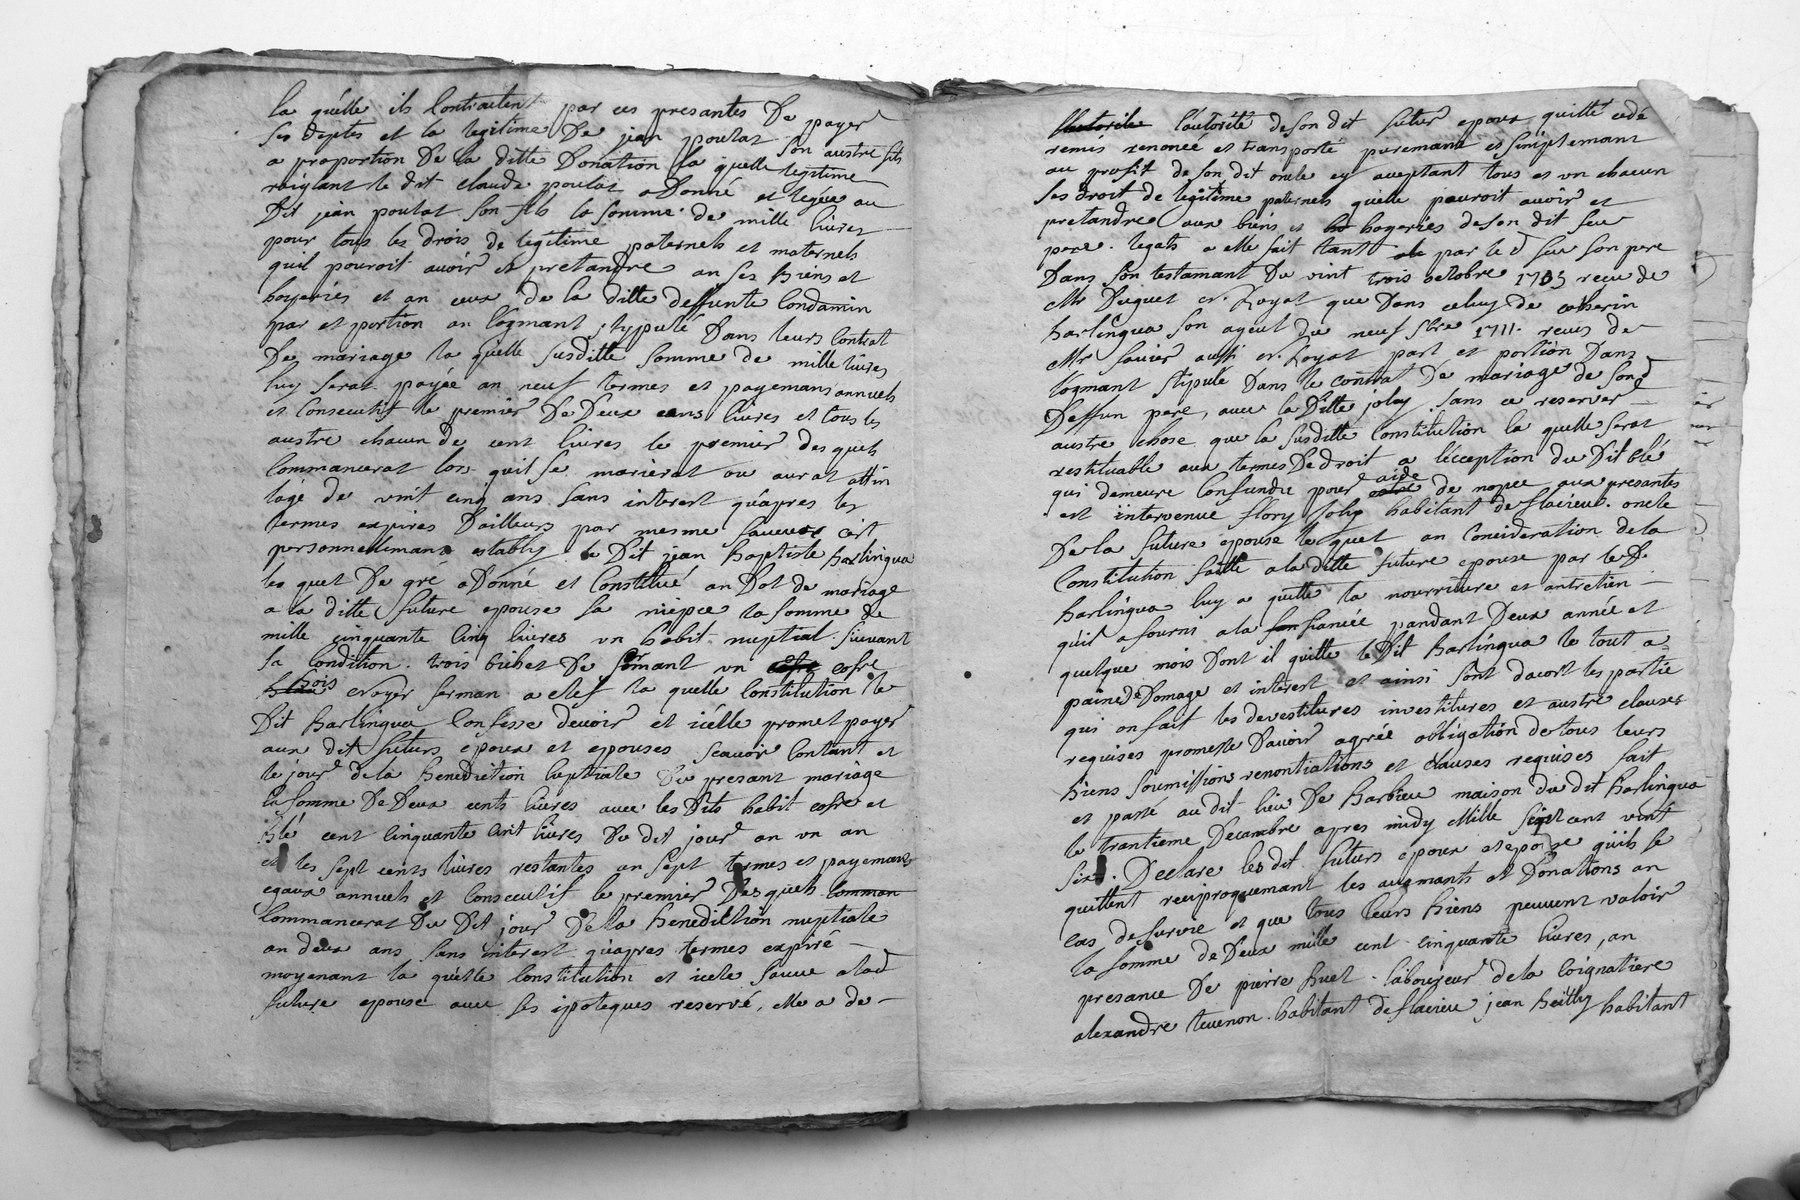 la quelle ils Contractent par ces presantes De payer
ses deptes et la legitime De jean poulat son austre fils
a proportion De la ditte Donation la quelle legitime
reiglant le dit claude poulat a Donné et legué au
Dit jean poulat son fils la somme de mille livres
pour tous les drois de legitime paternels et maternels
quil pouroit avoir et pretandre an ses biens et
hoyeries et an ceux de la ditte deffunte Condamin
par et portion an l'ogmant stypulé Dans leurs contrat
De mariage la quelle susditte somme de mille livres
luy serat payée an neuf termes et payemans annuels
et Consecutif le premier De Deux cens livres et tous les
austre chacun de cent livres le premier des quels
Commancerat lors quil se marierat ou aurat attin
lage de vint cinq ans sans interest quapres les
termes expires D'ailleurs par mesme
personnellemant estably le Dit jean baptiste harlingua
les quel De gré a Donné et Constitué an Dot de mariage
a la ditte future epouse sa niepce la somme de
mille cinquante cinq livres un habit nuptial suivant
sa Condition trois bichet De fromant un cofre
bois noyer ferman a clef la quelle Constitution le
Dit harlingua Confesse devoir et icelle promet payer
aux dit futurs epoux et epouses scavoir Contant et
le jour de la benediction nuptiale Du presant mariage
la somme De Deux cents livres avec les Dits habit cofre et
blé cent cinquante cinq livres Du dit jour an un an
et les sept cents livres restantes an sept termes et payemans
egaux annuels et Consecutif le premier Des quels comman
Commancerat Du Dit jour De la benediction nuptiale
an deux ans sans interest qu'apres termes expiré
moyenant la quelle Constitution et icele sauve a lad
future epouse avec ses ipoteques reservé, elle a de
l'autorité de son dit futur epoux quitté cedé
remis renoncé et transporté puremant et simplemant
au profit de son dit oncle ey aceptant tous et un chacun
ses droit de legitime paternels quelle pouroit avoir et
pretandre aux biens et hoyeries de son dit feu
pere legats a elle fait tant par le d feu son pere
Dans son testamant Du vint trois octobre 1703 recu de
Mr Duguet er. Royal que Dans celuy de
harlingua son ayeul Du neuf 1711 recus de
Mr aussi er. Royal part et portion Dans
l'ogmant stipulé Dans le contrat De mariage de son d
Deffun pere, avec la Ditte joly sans ce reserver
austre chose que la susditte Constitution la quelle serat
restituable aux termes De droit a l'exception du Dit blé
qui demeure Confundu pour aide de nopce aux presantes
est intervenue flory joly habitant de flacieu oncle
De la future epouse le quel an Concideration de la
Constitution faitte a la ditte future epouse par le D
harlingua luy a quitté la nourriture et antretien
quil a fourni a la fiancée pandant Deux année et
quelque mois Dont il quitte le Dit harlingua le tout a
paine De Domage et interest et ainsi sont dacort les partie
qui on fait les devestitures investitures et austre clauses
requises promesse D'avoir agrée obligation de tous leurs
biens soumissions renontiations et clauses requises fait
et passé au dit lieu De harbieu maison du dit harlingua
le trantieme Decambre apres midy Mille sept cent vint
six. Declare les dit futurs epoux et epouse quils se
quittent reciproquemant les augmants et Donations an
cas de survie et que tous leurs biens peuvent valoir
la somme de Deux mille cent cinquante livres, an
presance De pierre huet laboureur de la Coignatiere
alexandre tevenon habitant de flacieu jean heilly habitant